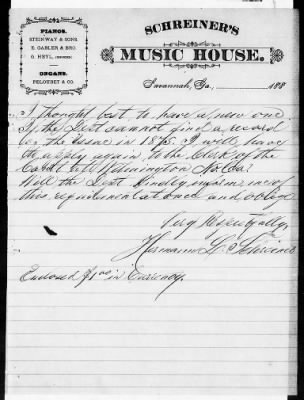 PIANOS.
STEINWAY & SONS.
E. GABLER & BRO.
O. HEYL,
ORGANS.
PELOUBET & CO.
SCHREINER'S
MUSIC HOUSE.
Savannah, Ga., 188
I thought best to have a new one.
If the Dept cannot find a record
of the issue in 1875. I will have
to apply again to the Clerk of the
Court at Wilmington No. Ca.
Will the Dept Kindly inform me of
this requirement at once and oblige
Very Respectfully
Hermann L. Schreiner
Enclosed $1 00 in Currency.